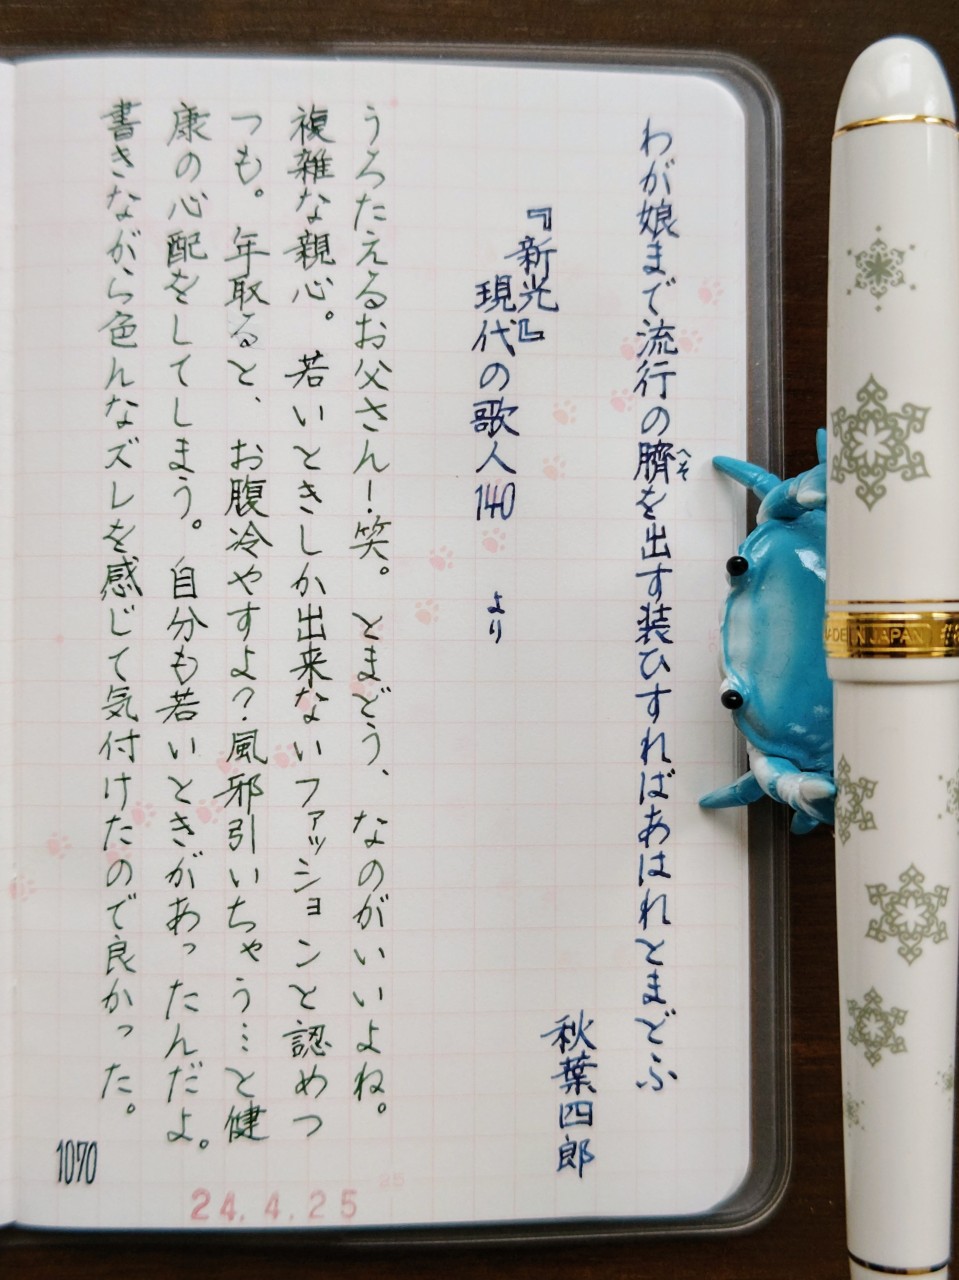 わが娘まで流行の臍を出す装ひすればあはれとまどふ
へそ
秋葉四郎
『新光』
現代の歌人140 より
うろたえるお父さん！笑。とまどう、なのがいいよね。
複雑な親心。若いときしか出来ないファッションと認めつ
つも。年取ると、お腹冷やすよ？風邪引いちゃう…と健
康の心配をしてしまう。自分も若いときがあったんだよ。
書きながら色んなズレを感じて気付けたので良かった。
1070
24.4.25
MADE IN JAPAN